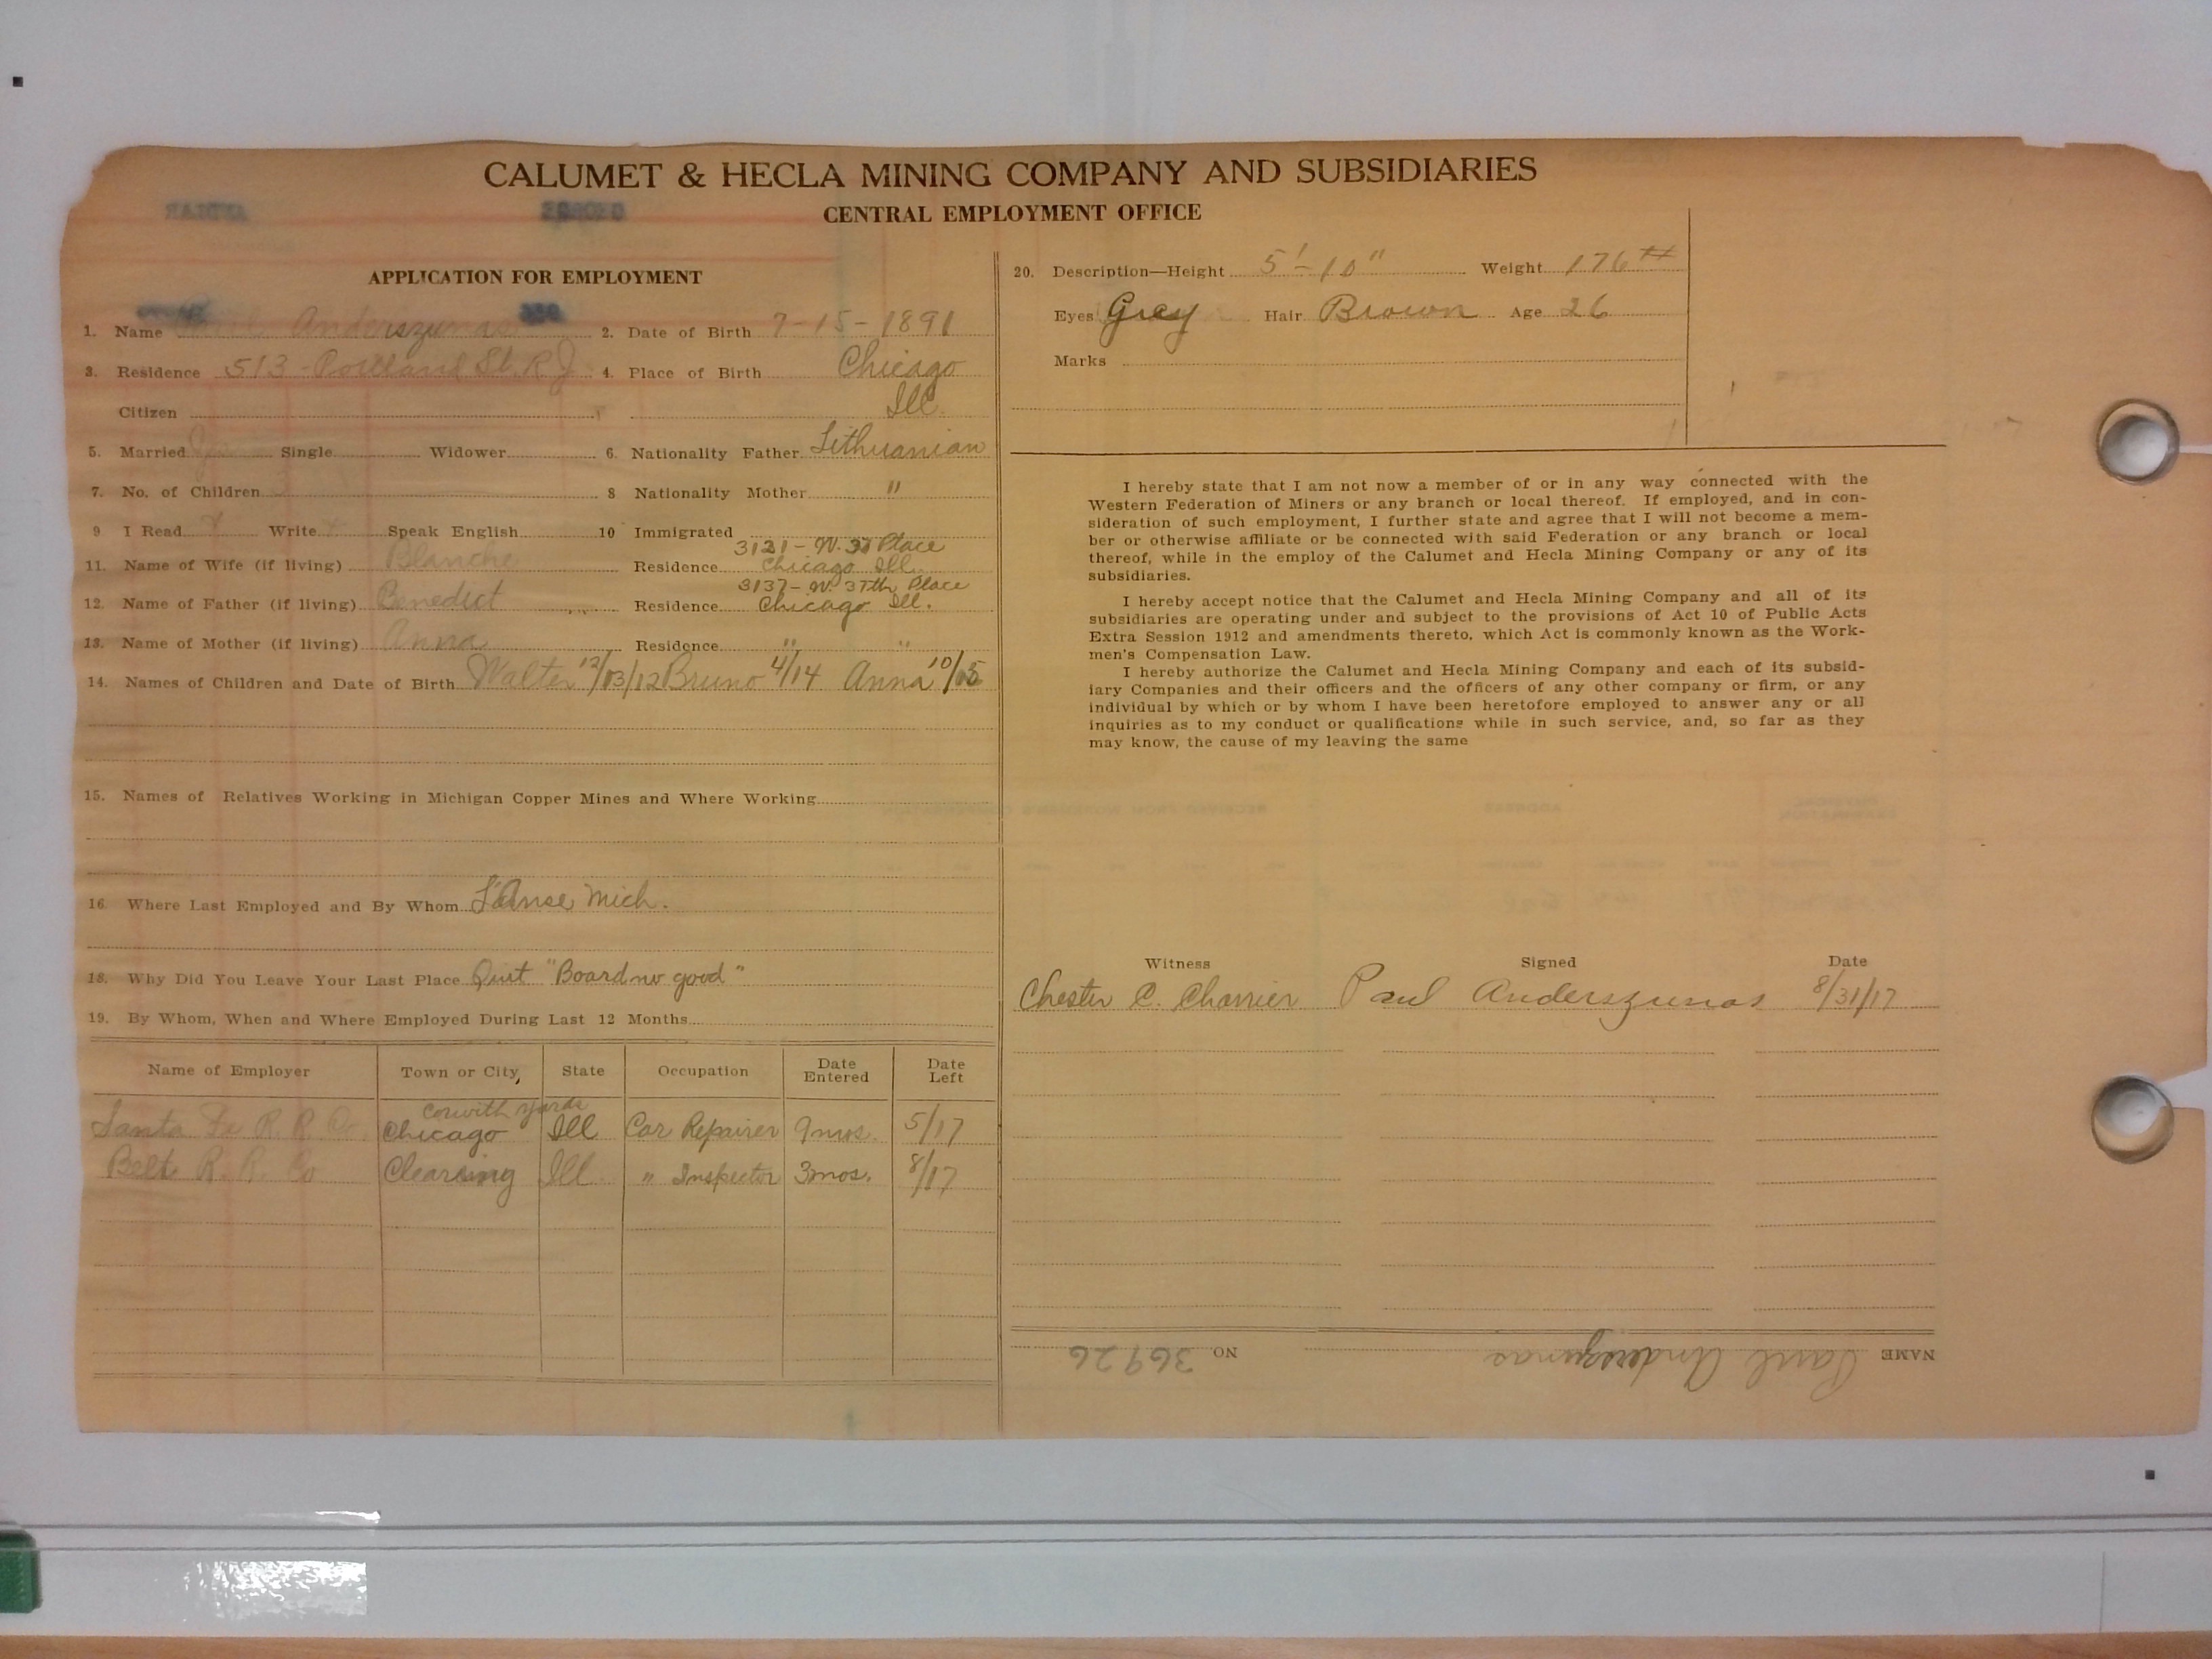 CALUMET & HECLA MINING COMPANY AND SUBSIDIARIES
CENTRAL EMPLOYMENT OFFICE
APPLICATION FOR EMPLOYMENT
1. Name Paul Anderszunas 2. Date of Birth 7-15-1891
3. Residence 513-Portland St. R.J. 4. Place of Birth Chicago
Citizen Ill.
5. Married Yes Single Widower 6. Nationality Father Lithuanian
7. No. of Children 3 8 Nationality Mother "
9 I Read Write Speak English 10 Immigrated
3121-W. 37 Place
11. Name of Wife (if living) Blanche Residence Chicago Ill.
3137-W. 37th Place
12. Name of Father (if living) Benedict Residence Chicago Ill.
13. Name of Mother (if living) Anna Residence " "
14. Names of Children and Date of Birth Walter 12/03/12 Bruno 4/14 Anna 10/15
15. Names of Relatives Working in Michigan Copper Mines and Where Working
16 Where Last Employed and By Whom L'Anse Mich.
18. Why Did You Leave Your Last Place Quit "Board no good"
19. By Whom, When and Where Employed During Last 12 Months
Name of Employer Town or City State Occupation Date Entered Date Left
Corwith Yards
Santa Fe R. R. Co. Chicago Ill Car Repairer 9 mos. 5/17
Belt R. R. Co Clearing Ill " Inspector 3 mos. 8/17
20. Description—Height 5'-10" Weight 176 #
Eyes Grey Hair Brown Age 26
Marks
I hereby state that I am not now a member of or in any way connected with the
Western Federation of Miners or any branch or local thereof. If employed, and in con-
sideration of such employment, I further state and agree that I will not become a mem-
ber or otherwise affiliate or be connected with said Federation or any branch or local
thereof, while in the employ of the Calumet and Hecla Mining Company or any of its
subsidiaries.
I hereby accept notice that the Calumet and Hecla Mining Company and all of its
subsidiaries are operating under and subject to the provisions of Act 10 of Public Acts
Extra Session 1912 and amendments thereto, which Act is commonly known as the Work-
men's Compensation Law.
I hereby authorize the Calumet and Hecla Mining Company and each of its subsid-
iary Companies and their officers and the officers of any other company or firm, or any
individual by which or by whom I have been heretofore employed to answer any or all
inquiries as to my conduct or qualifications while in such service, and, so far as they
may know, the cause of my leaving the same
Witness Signed Date
Chester C. Charrier Paul Anderszunas 8/31/17
NAME Paul Anderszunas NO. 36926